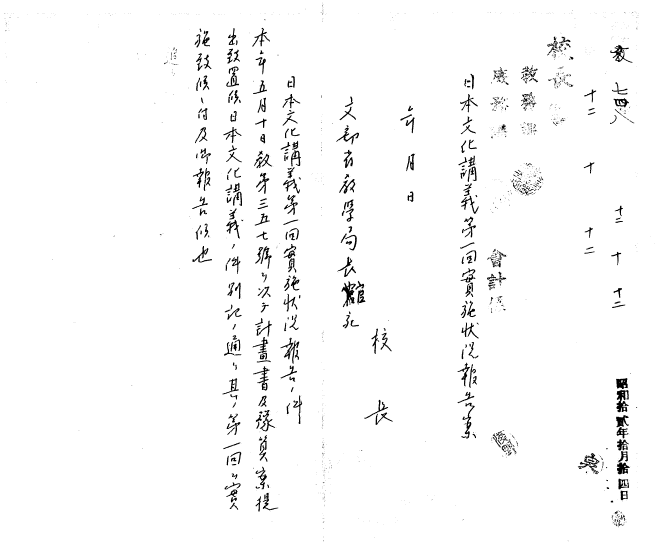 教 七四八
十二 十 十二
十二 十 十二
昭和拾貳年拾月拾四日
校長
教務課
庶務課
會計係
日本文化講義第一回實施狀況報告案
年 月 日
校長
文部省教學局長官宛
日本文化講義第一回實施狀況報告ノ件
本年五月十日教第三五七號ヲ以テ計畫書及豫算案提
出致置候日本文化講義ノ件別記ノ通リ其ノ第一回ヲ實
施致候ニ付及御報告候也